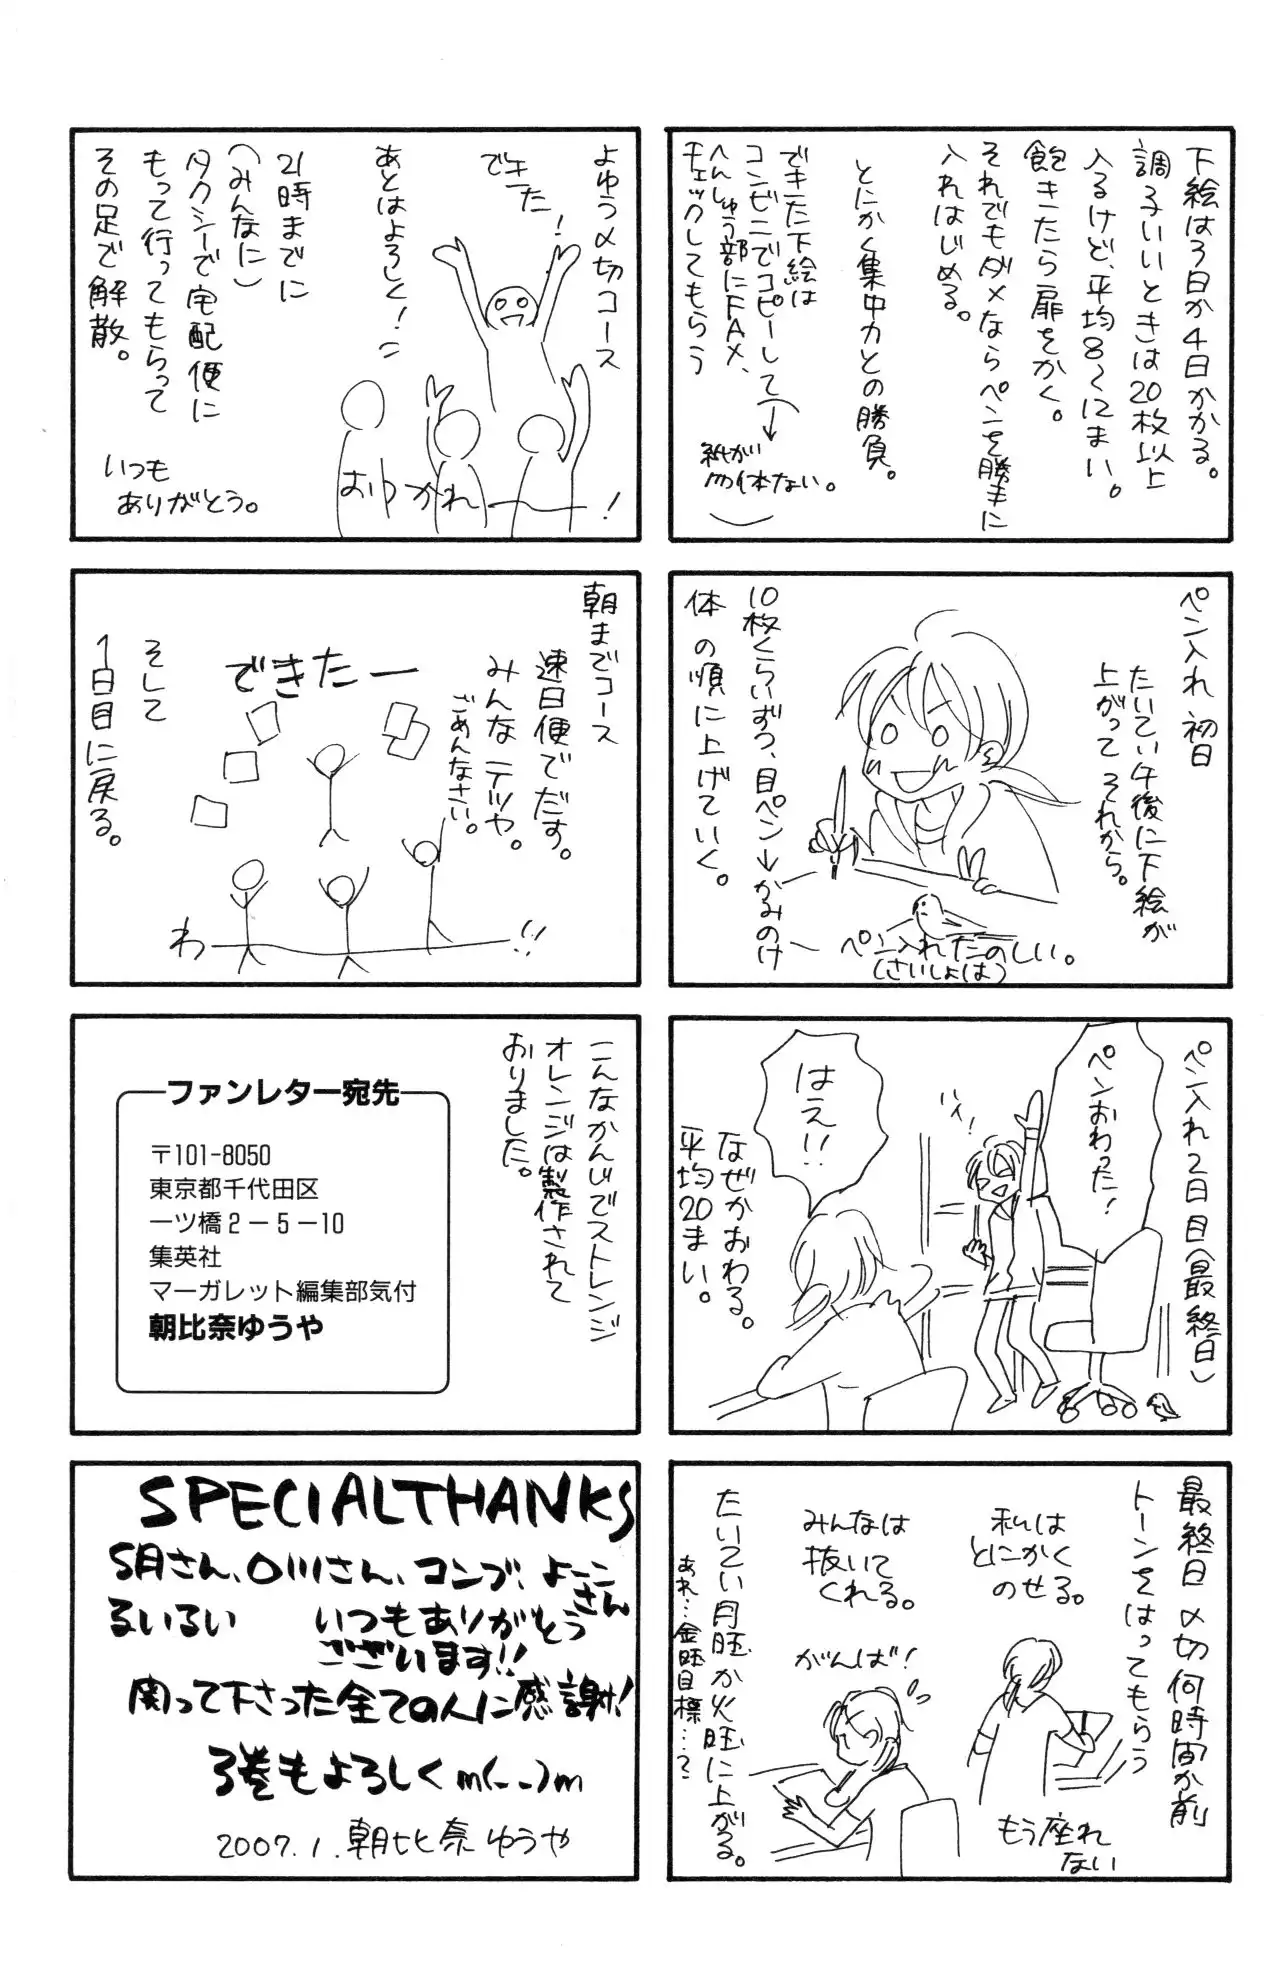 下絵は3日か4日かかる。
調子いいときは20枚以上
入るけど、平均8〜12まい。
飽きたら扉をかく。
それでもダメならペンを勝手に
入れはじめる。
とにかく集中力との勝負。
できた下絵は
コンビニでコピーして
へんしゅう部にFAX、
チェックしてもらう
紙が
勿体ない。
ペン入れ 初日
たいてい午後に下絵が
上がって それから。
10枚くらいずつ、目ペン→かみのけ
体 の順に上げていく。
ペン入れたのしい。
(さいしょは)
ペン入れ2日目(最終日)
ペンおわった!
ハイ!
はえ!!
なぜかおわる。
平均20まい。
最終日 〆切何時間か前
トーンをはってもらう
私は
とにかく
のせる。
みんなは
抜いて
くれる。
がんば!
もう座れ
ない
たいてい月旺か火旺に上がる。
あれ…金旺目標…?
よゆう〆切コース
できた!
あとはよろしく!
21時までに
(みんなに)
タクシーで宅配便に
もって行ってもらって
その足で解散。
おつかれー!
いつも
ありがとう。
朝までコース
速日便でだす。
みんなテツヤ。
ごめんなさい。
できたー
わー!!
そして
1日目に戻る。
こんなかんじでストレンジ
オレンジは製作されて
おりました。
ファンレター宛先
〒101-8050
東京都千代田区
一ツ橋2－5－10
集英社
マーガレット編集部気付
朝比奈ゆうや
SPECIALTHANKS
S月さん、O川さん、コンブ、よーこさん
るいるい いつもありがとう
ございます!!
関って下さった全ての人に感謝!
3巻もよろしくm(--)m
2007.1.朝比奈ゆうや